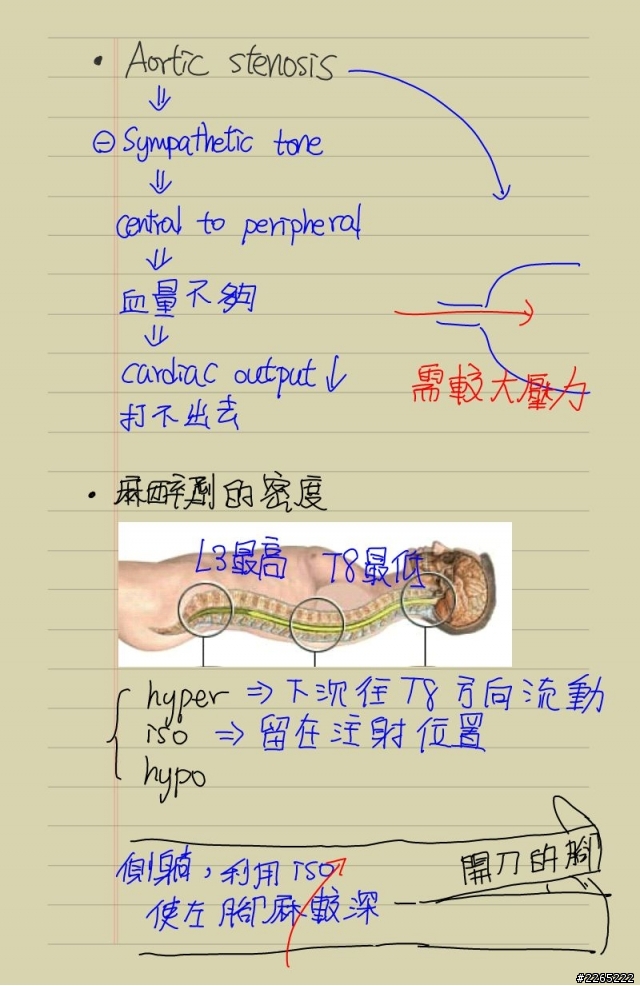 • Aortic stenosis
⇓
⊖ Sympathetic tone
⇓
central to peripheral
⇓
血量不夠
⇓
cardiac output ↓
打不出去
需較大壓力
• 麻醉劑的密度
L3最高 T8最低
hyper ⇒ 下沈往 T8 方向流動
iso ⇒ 留在注射位置
hypo
側躺，利用 iso
使左腳麻較深
開刀的腳
#2265222